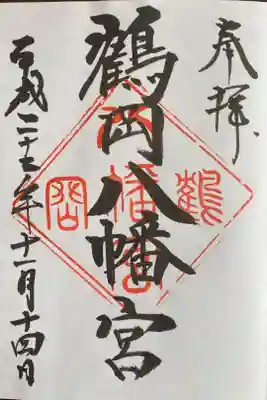 奉拝
鶴岡八幡宮
平成二十七年十一月十四日
鶴岡八幡宮